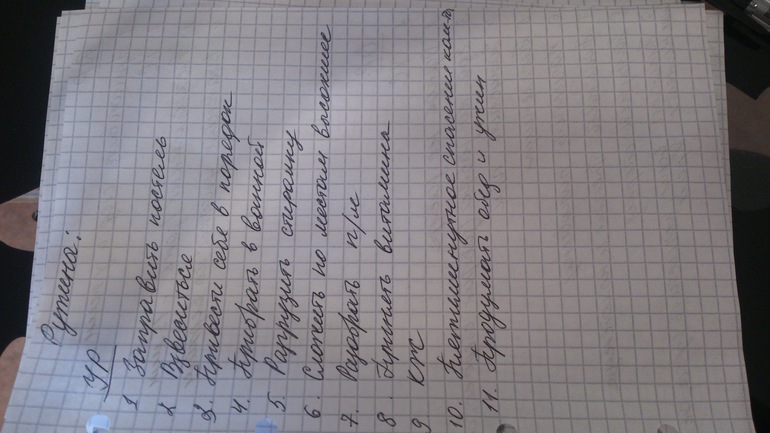 Рутина:
УР
1 Заправить постель
2 Взвеситься
3. Привести себя в порядок
4. Прибрать в ванной
5. Разгрузить стиралку
6. Сложить по местам высохшее
7. Разобрать п/м
8. Принять витамины
9 КЖ
10. Пятиминутное спасение
11. Продумать обед и ужин